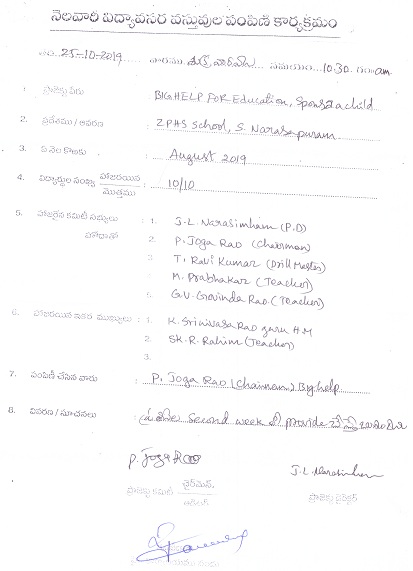 నెలవారి విద్యావసర వస్తువుల పంపిణి కార్యక్రమం
25-10-2019 వారము శుక్రవారము సమయం 10:30 గం am
1. ప్రాజెక్టు పేరు : BIGHELP FOR Education, Sponsor a child
2. ప్రదేశము / ఆవరణ : ZPHS School, S. Narasapuram
3. ఏ నెల కొరకు : August 2019
4. విద్యార్థుల సంఖ్య హాజరయిన / మొత్తము : 10/10
5. హాజరైన కమిటీ సభ్యులు : 1. J-L. Narasimham (P.D)
హోదాతో 2. P. Joga Rao (Chairman)
3. T. Ravi Kumar (Drill Master)
4. M. Prabhakar (Teacher)
5. G.V. Govinda Rao. (Teacher)
6. హాజరయిన ఇతర ముఖ్యులు : 1. K. Srinivasa Rao guru H.M
2. SK. R. Rahim (Teacher)
3.
7. పంపిణీ చేసిన వారు : P. Joga Rao (Chairman) Bighelp
8. వివరణ / సూచనలు : ప్రతి నెల Second week లో provide చేస్తే బాగుంటుంది
P. Joga Rao
J. L. Narasimham
ప్రాజెక్టు కమిటీ చైర్‌మెన్
ప్రాజెక్టు డైరెక్టర్